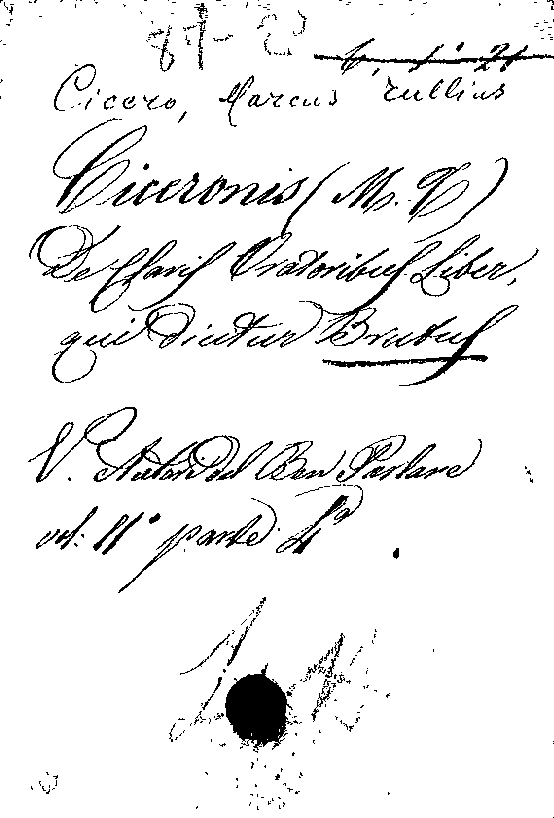 Cicero, Marcus Tullius
Ciceronis (M. T.)
De Claris Oratoribus Liber,
qui dicitur Brutus
V. Autori del Ben Parlare
vol: 11° parte 4ª.